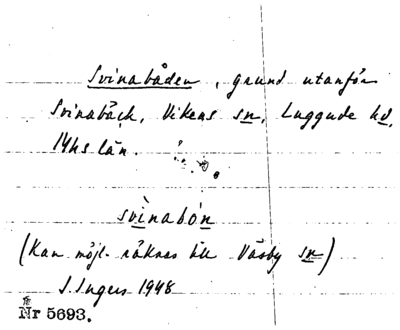 Svinabåden, grund utanför
Svinabäck, Vikens sn, Luggude hd,
Mhs län.
svìnabón
(Kan möjl. räknas till Väsby sn)
I. Ingers 1948
Nr 5693.